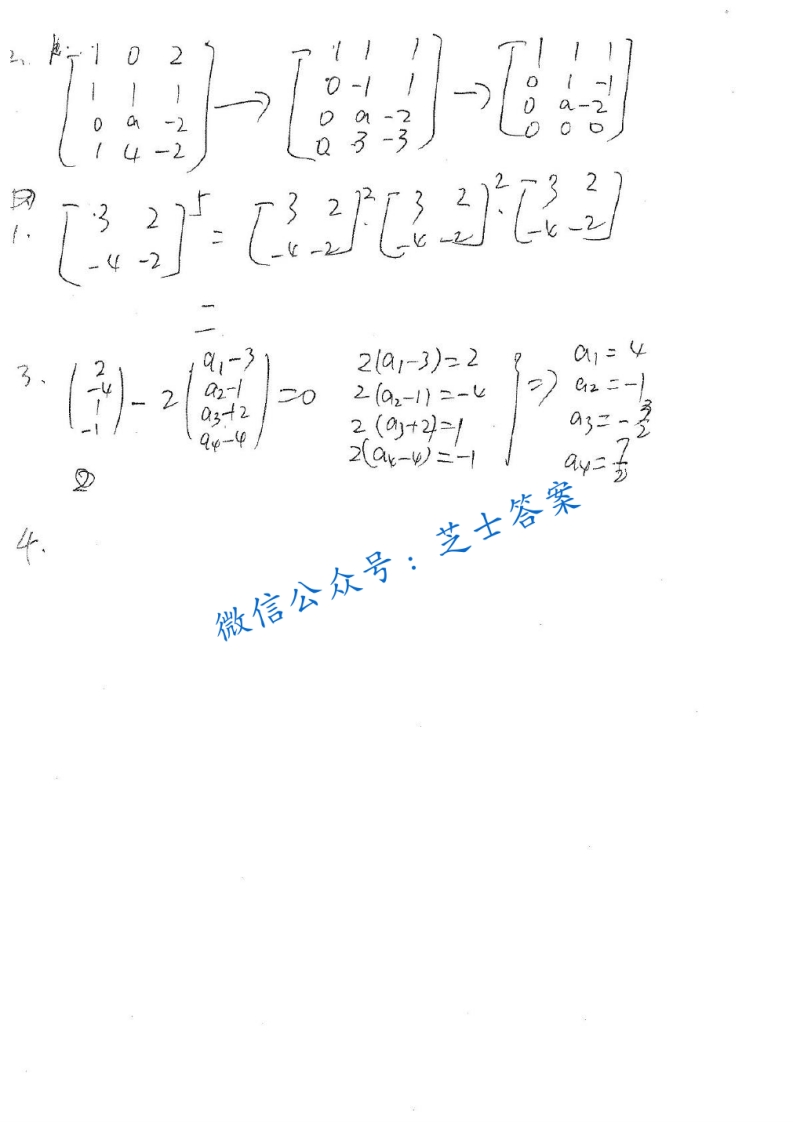 2. [1 0 2; 1 1 1; 0 a -2; 1 4 -2] → [1 1 1; 0 -1 1; 0 a -2; 0 3 -3] → [1 1 1; 0 1 -1; 0 a -2; 0 0 0]
四
1. [3 2; -4 -2]^5 = [3 2; -4 -2]^2 · [3 2; -4 -2]^2 · [3 2; -4 -2]
=
3. (2; -4; 1; -1) - 2(a1-3; a2-1; a3+2; a4-4) = 0
2(a1-3)=2
2(a2-1)=-4
2(a3+2)=1
2(a4-4)=-1
} ⇒
a1=4
a2=-1
a3=-3/2
a4=7/2
4.
微信公众号：芝士答案